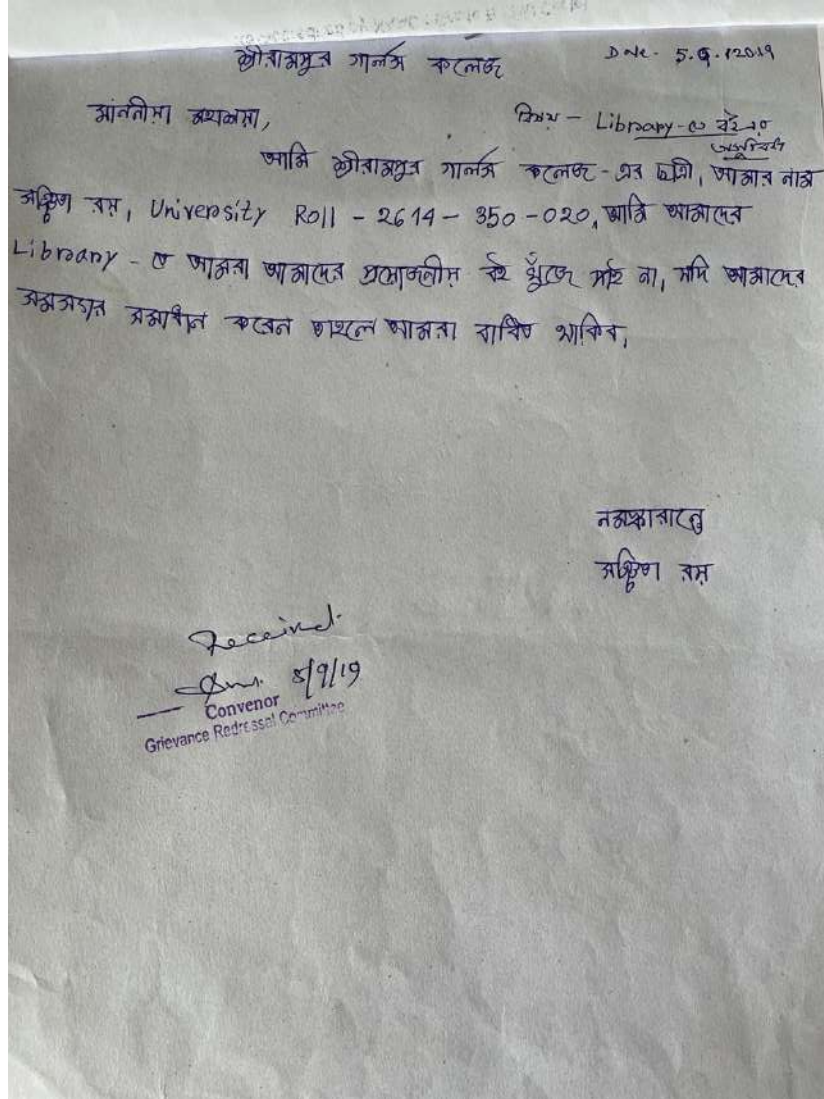 শ্রীরামপুর গার্লস কলেজ Date - 5.9.2019
মাননীয়া মহাশয়া,
বিষয় - Library-তে বই এর
অসুবিধা
আমি শ্রীরামপুর গার্লস কলেজ-এর ছাত্রী, আমার নাম
রায়, University Roll - 2614-350-020, আমি আমাদের
Library - তে আমরা আমাদের প্রয়োজনীয় বই খুঁজে পাই না, যদি আমাদের
সমস্যার সমাধান করেন তাহলে আমরা বাধিত থাকিব,
নমস্কারান্তে
রায়
Received.
5/9/19
Convenor
Grievance Redressal Committee